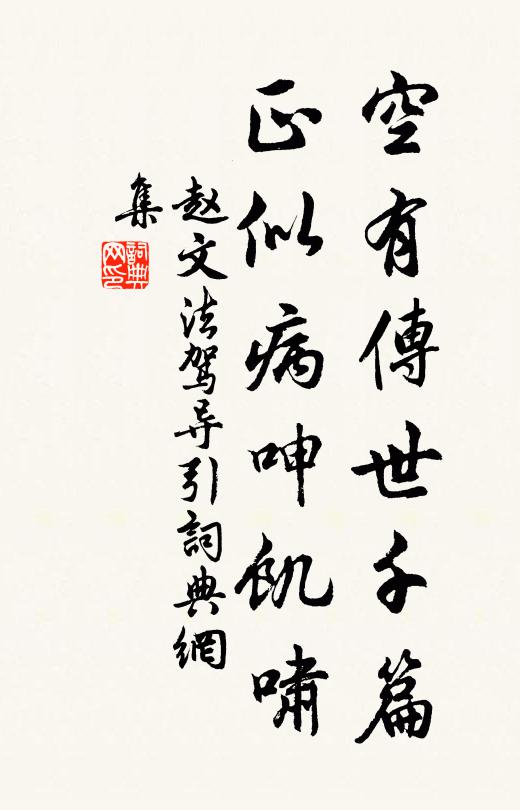 空有傳世千篇
正似病呻飢嘯
赵文法驾导引詞典網
集
詞典網印